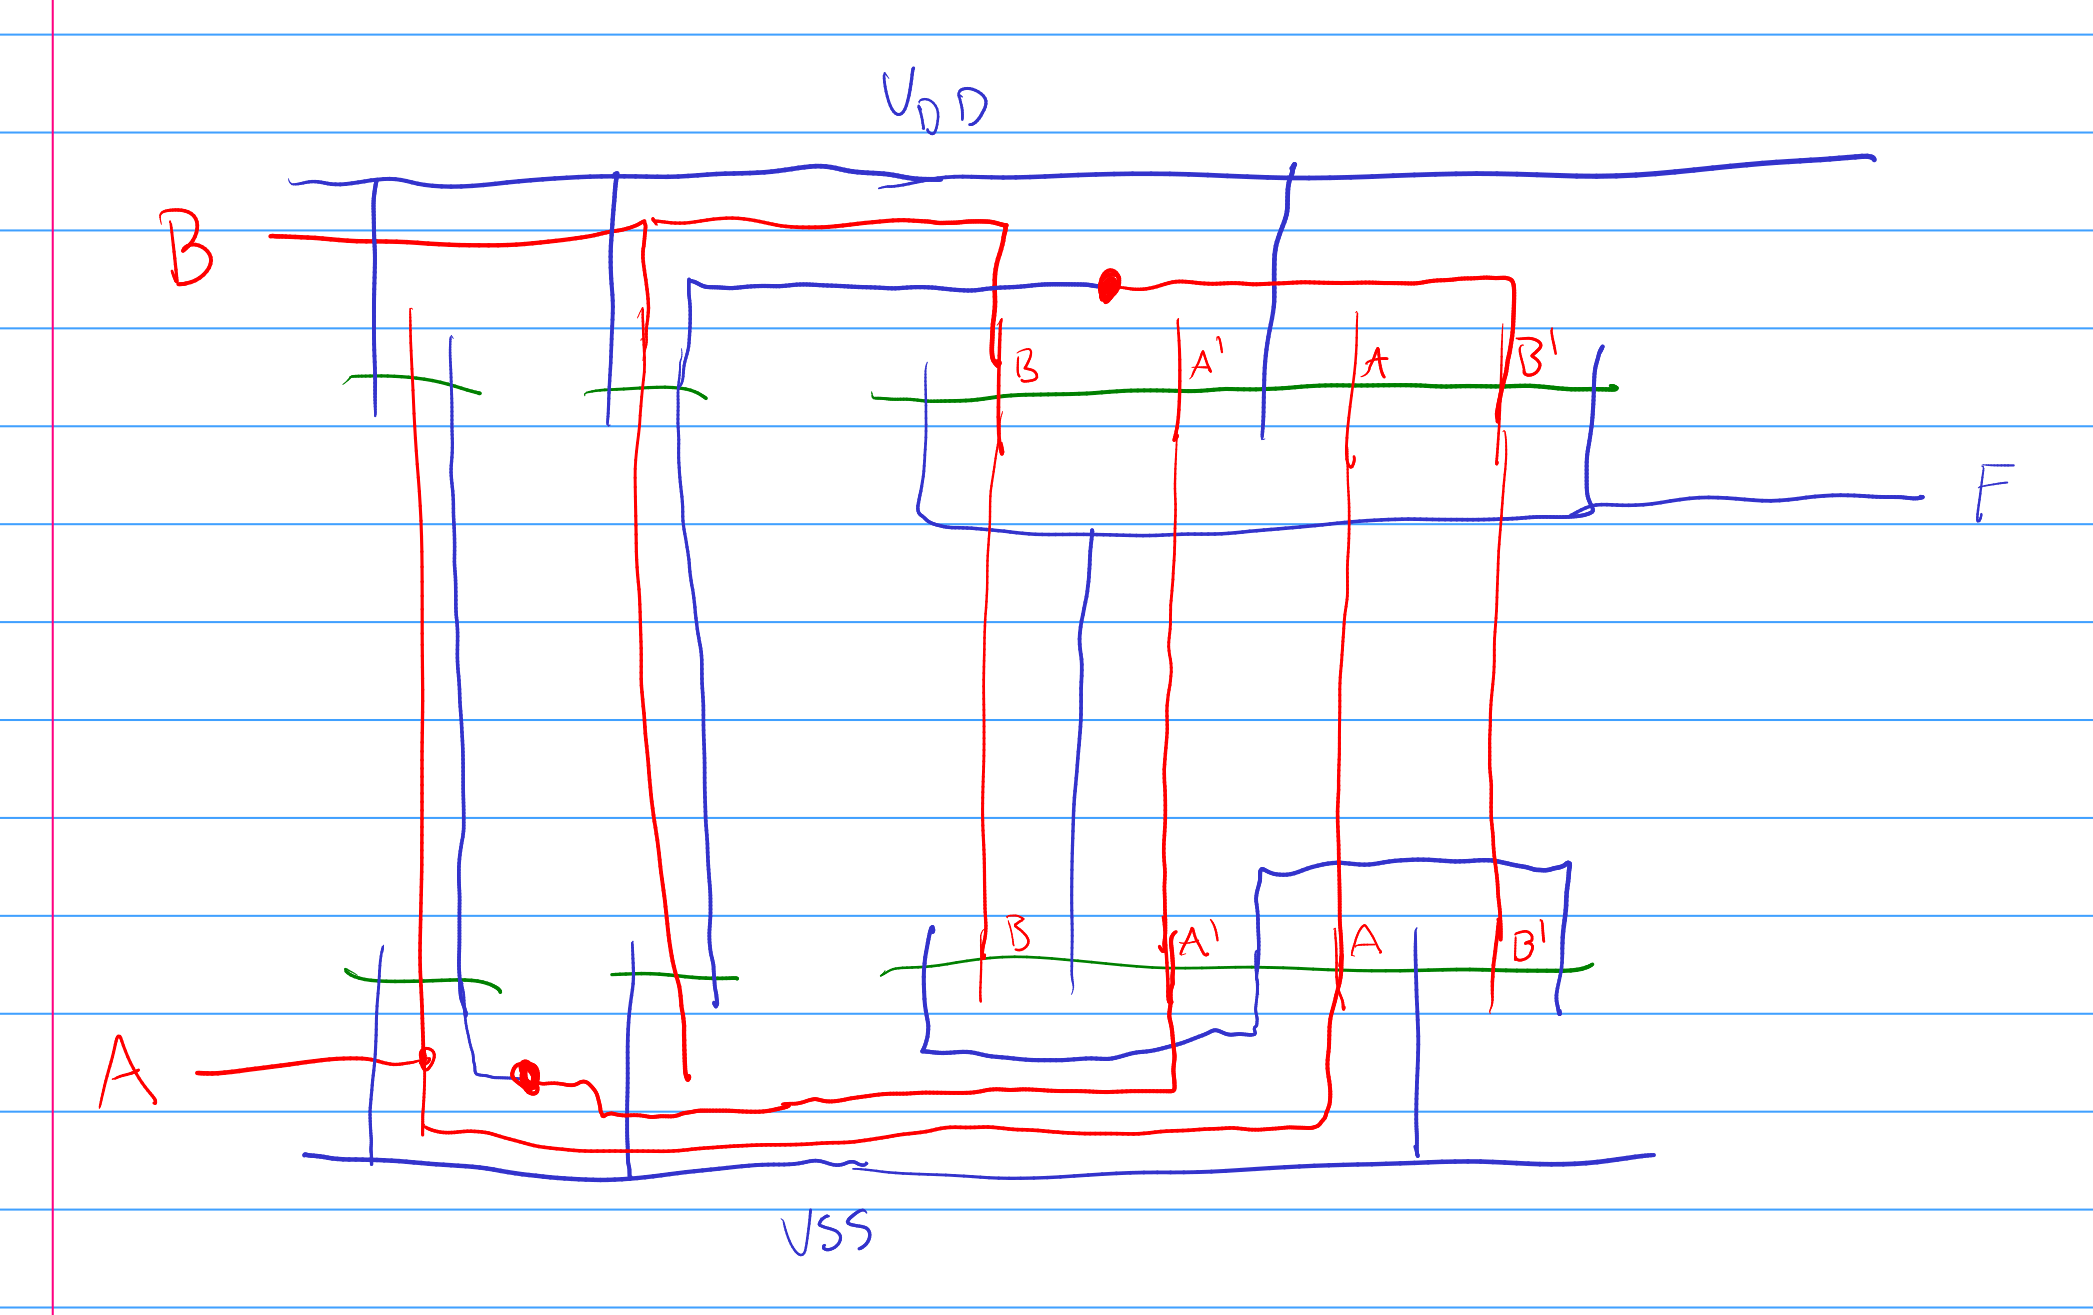 VDD
B
B A' A B'
F
B A' A B'
A
VSS